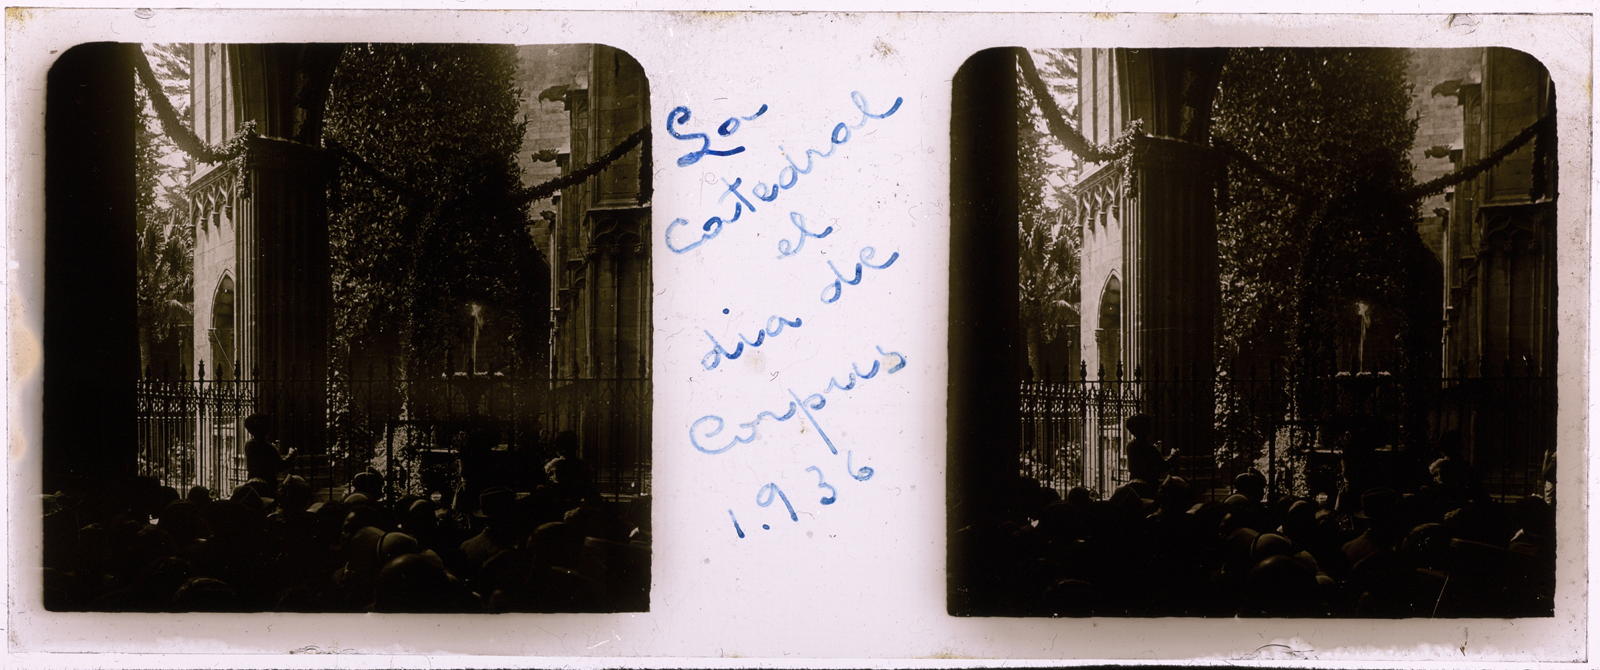 La
Catedral
el
dia de
Corpus
1.936